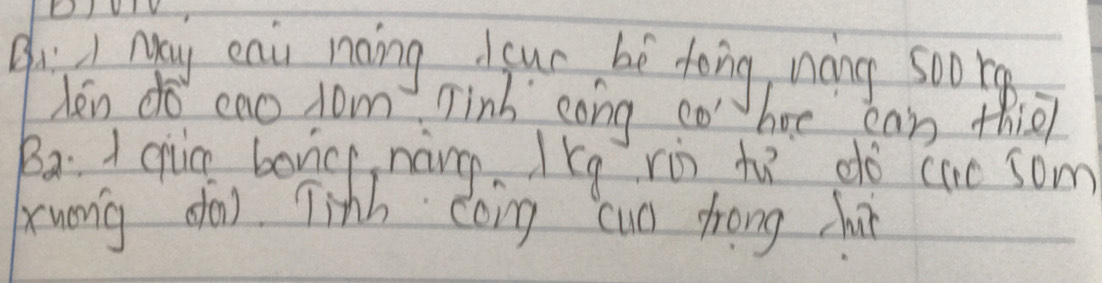 B1: 1 máy cẩu nâng 1 cục bê tông nặng 500 kg
lên độ cao 10m. Tính công cơ học cần thiết
B2: 1 quả bóng nặng 1 kg rơi từ độ cao 50m
xuống đất. Tính công của trọng lực